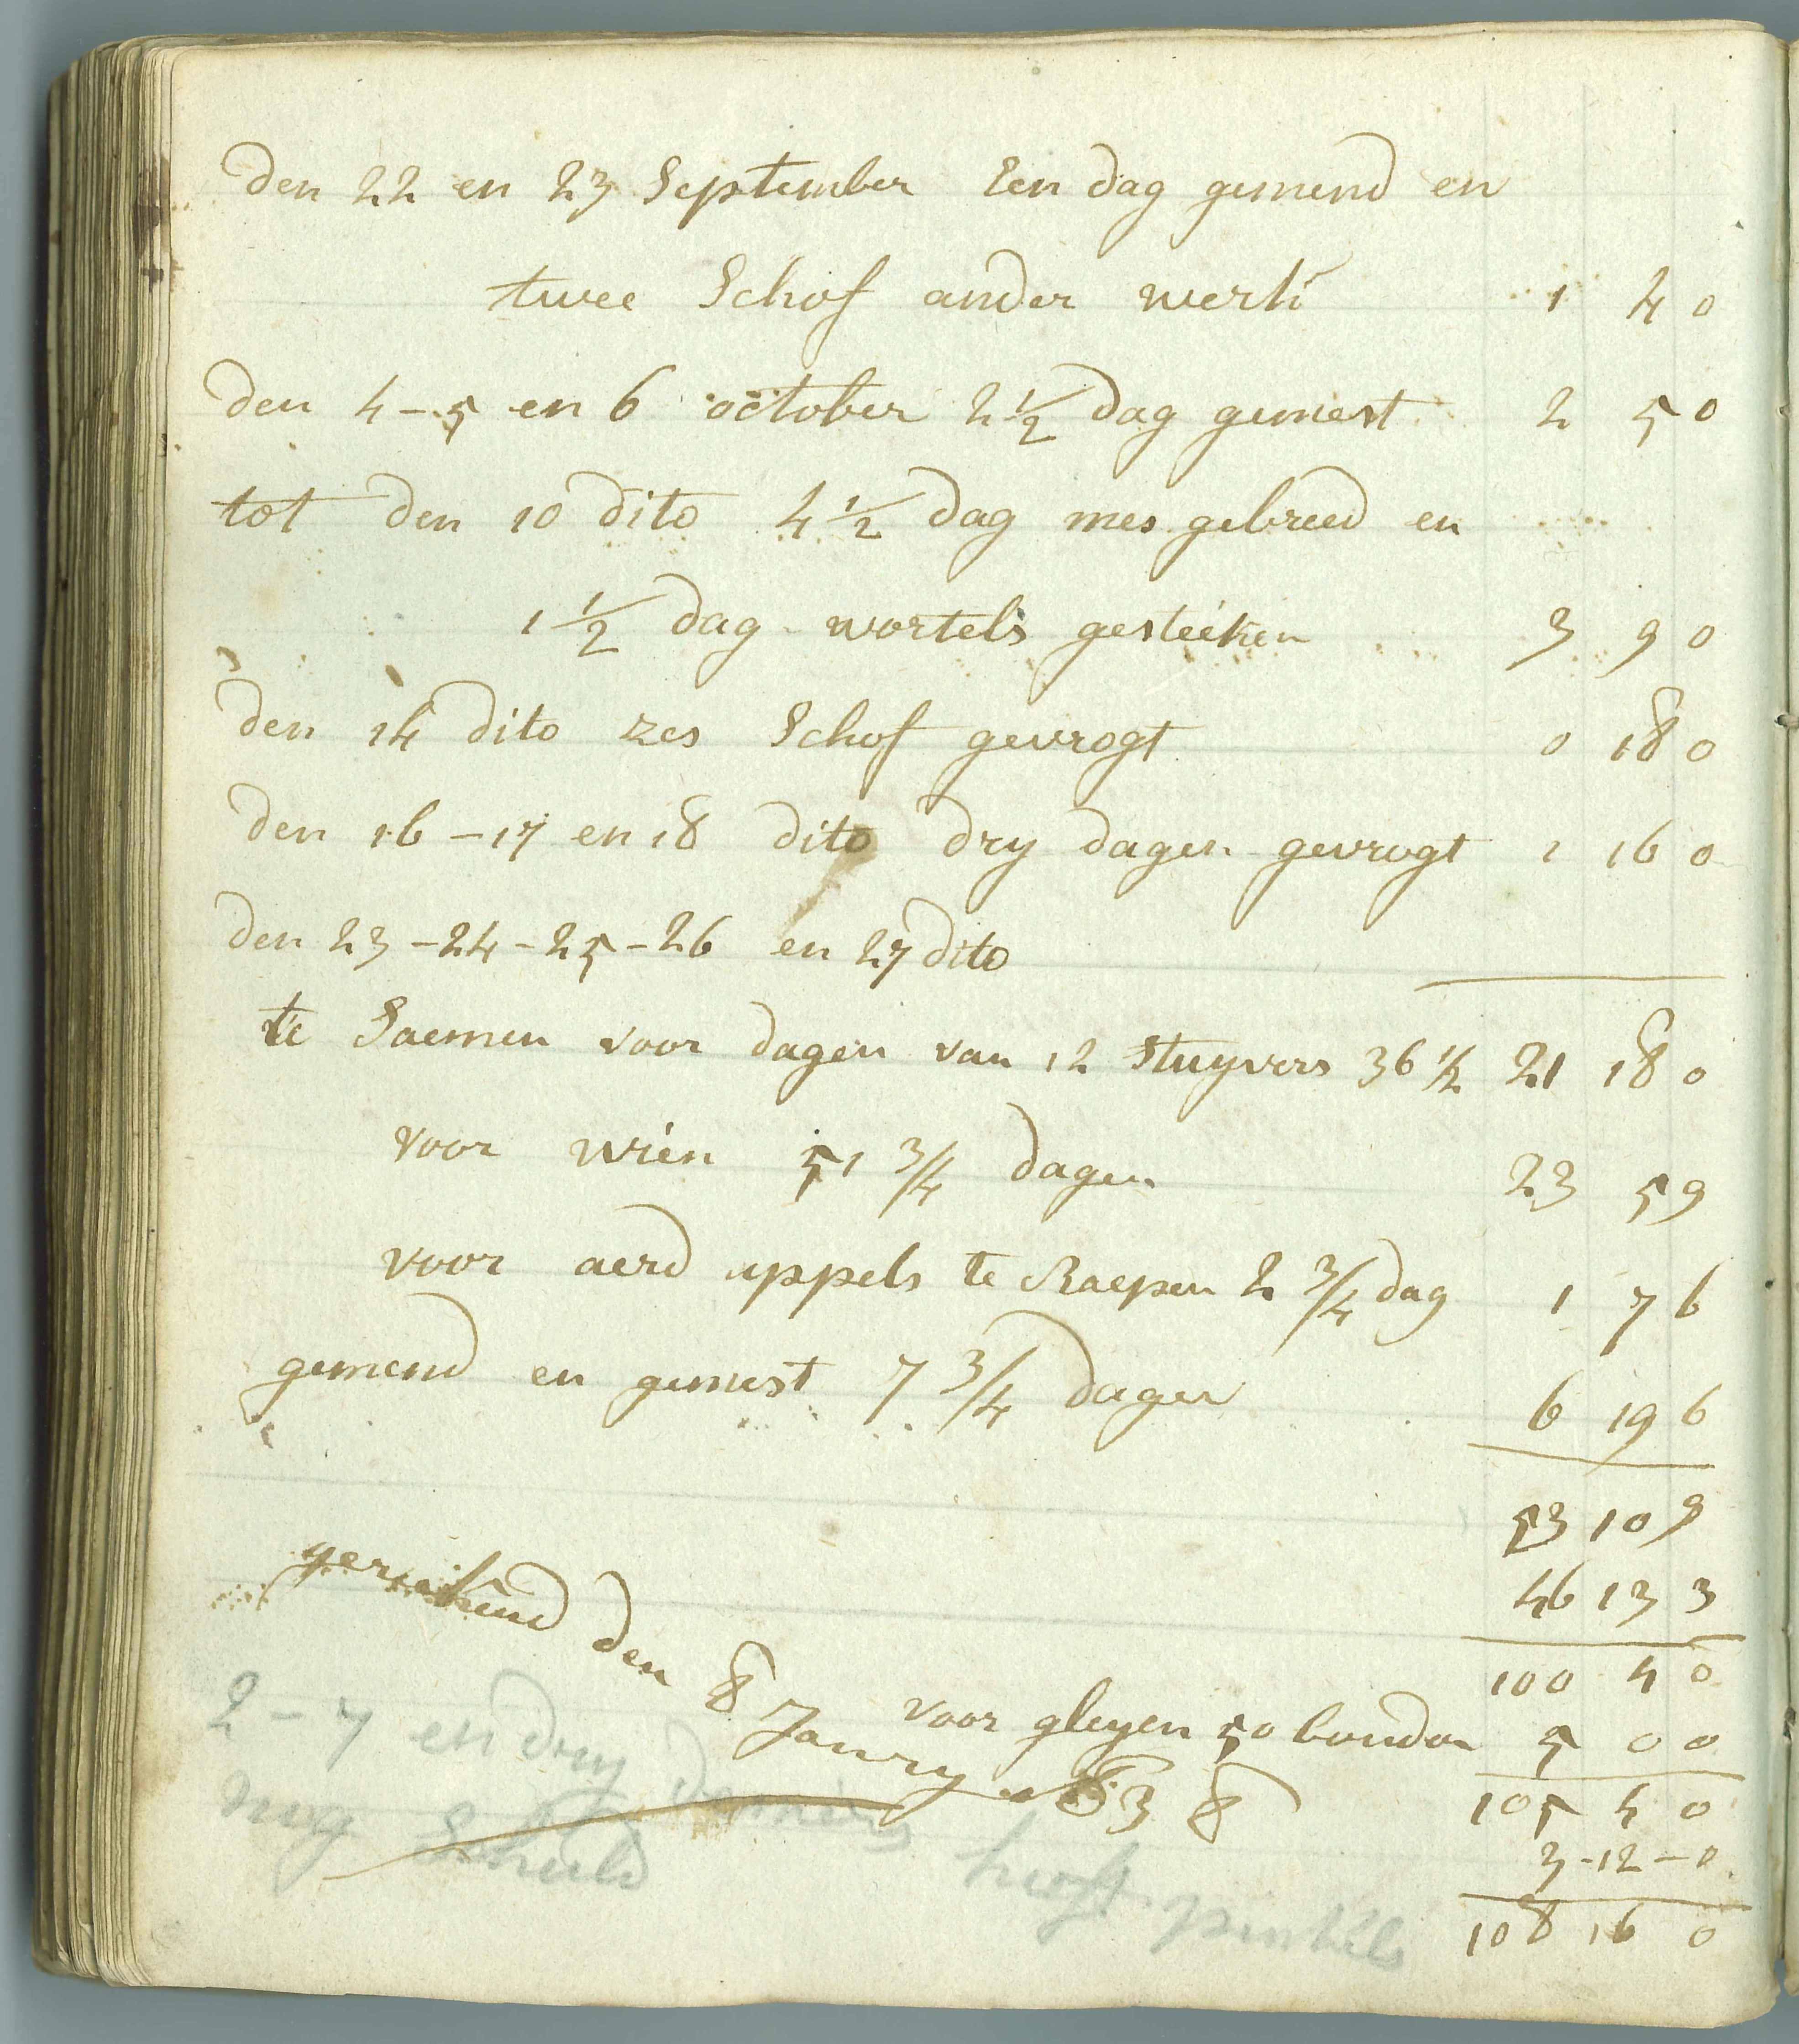 den 22 en 23 September Een dag gemend en
twee Schof ander werk 1 4 0
den 4 - 5 en 6 october 2 1/2 dag gemest 2 5 0
tot den 10 dito 4 1/2 dag mes gebreed en
1 1/2 dag wortels gesteéken 3 9 0
den 14 dito zes Schof gevrogt 0 18 0
den 16 - 17 en 18 dito dry dagen gevrogt 1 16 0
den 23 - 24 - 25 - 26 en 27 dito
te Saemen voor dagen van 12 Stuyvers 36 1/2 21 18 0
voor wién 51 3/4 dagen 23 5 9
voor aerd appels te Raepen 2 3/4 dag 1 7 6
gemend en gemest 7 3/4 dagen 6 19 6
53 10 9
46 13 3
100 4 0
gerekend den 8 Janry 1838
voor gleyen 50 bonden 5 0 0
105 4 0
3 - 12 - 0
108 16 0
2 - 7 en dry heeft
nog Schuld